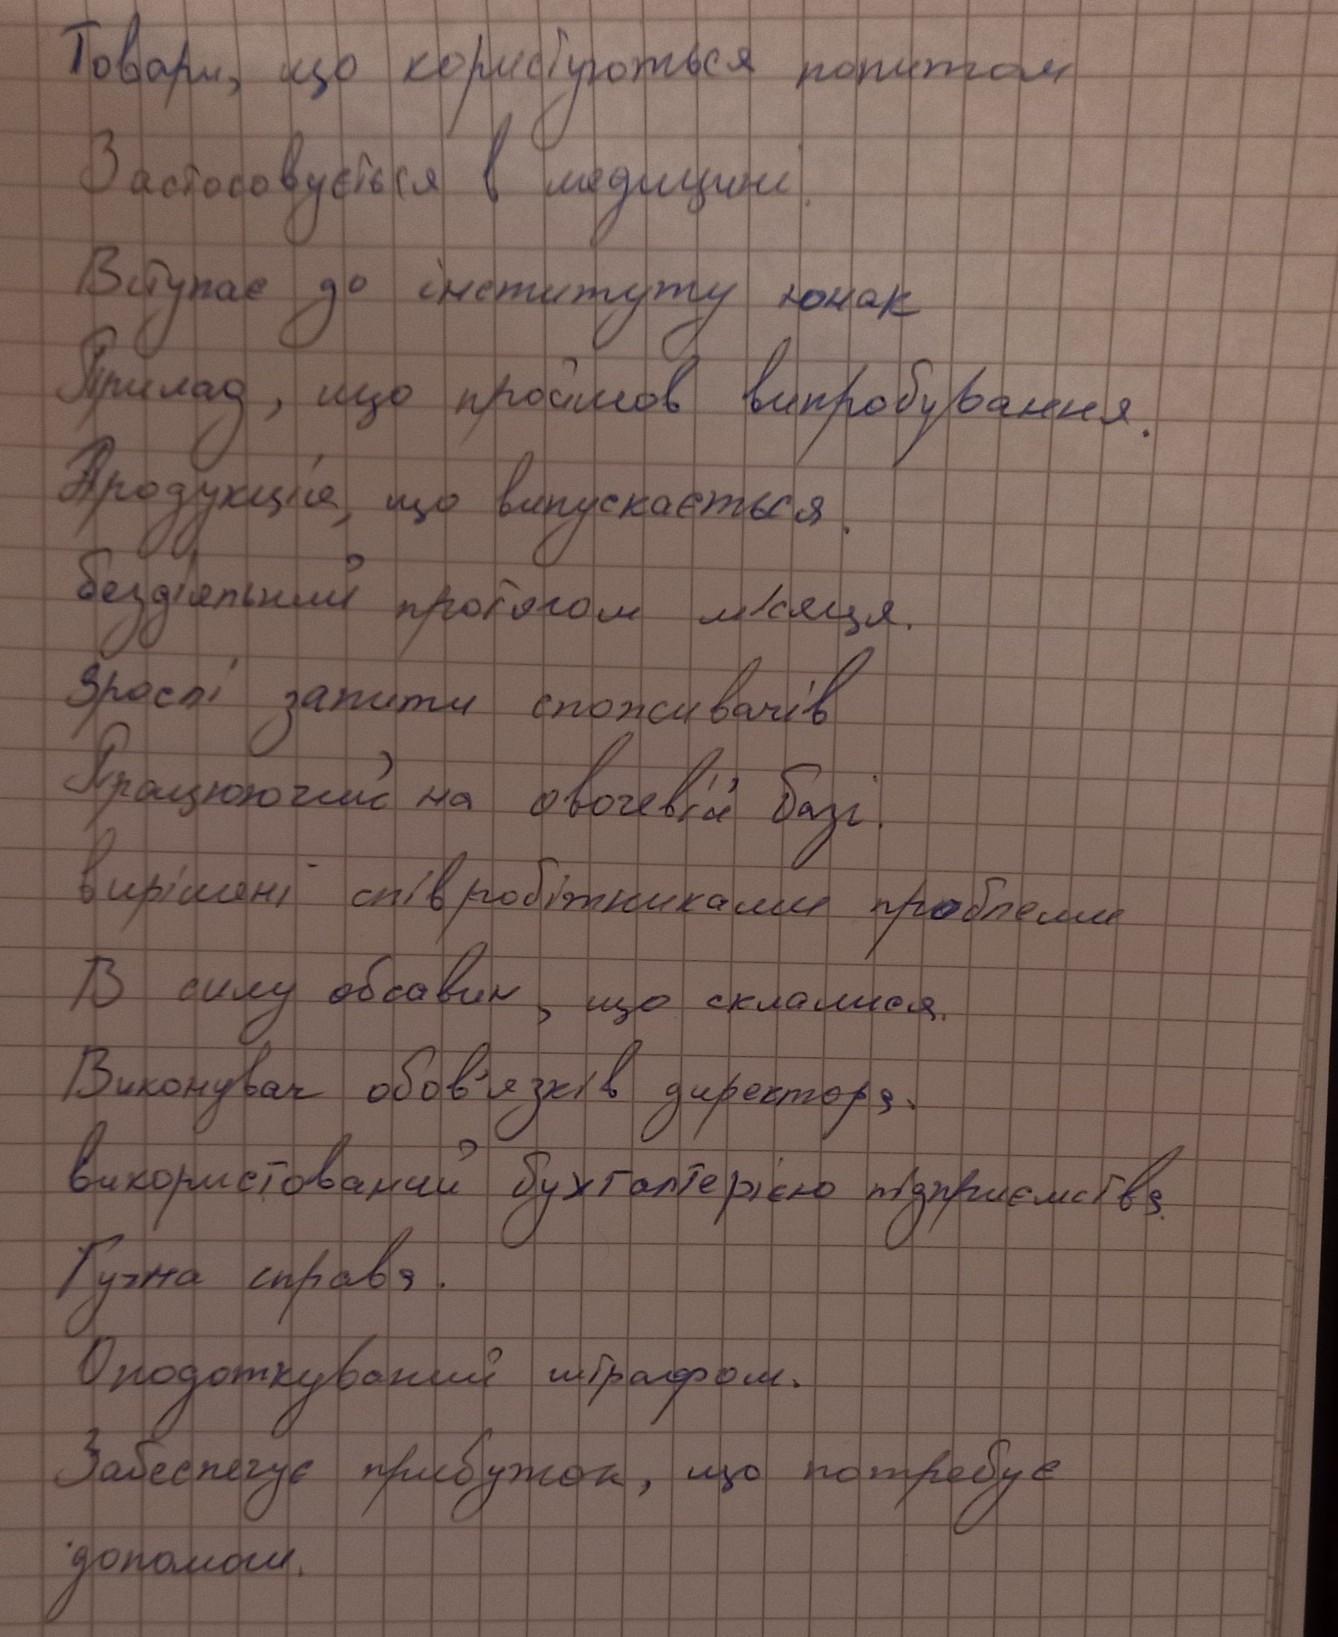 Товари, що користуються попитом
Застосовується в медицині.
Вступає до інституту юнак
Прилад, що пройшов випробування.
Продукція, що випускається.
бездіяльний протягом місяця.
Зрослі запити споживачів
Працюючий на овочевій базі.
вирішені співробіжниками проблеми
В силу обсавин, що склалися.
Виконувач обов'язків директора.
використований бухгалтерією підприємства.
Гучна справа.
Оподоткуваний штрафом.
Забеспечує прибужок, що потребує
допомоги.